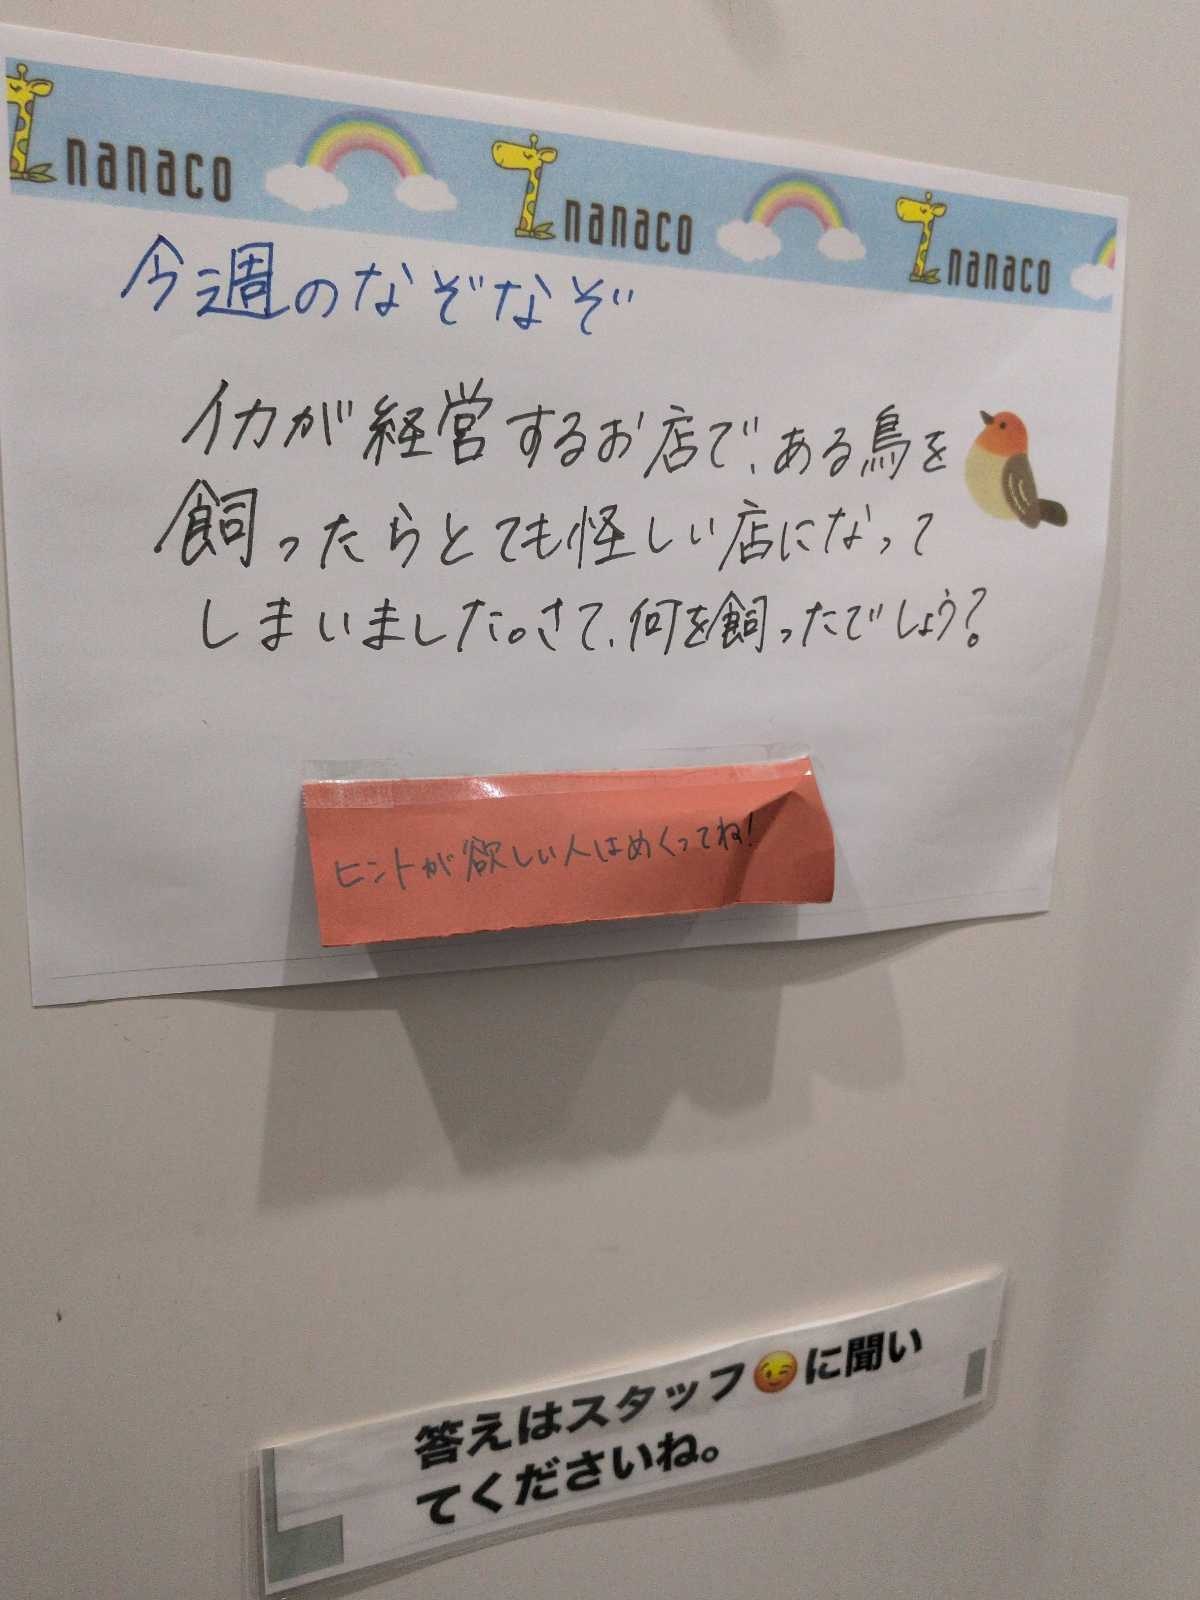 nanaco nanaco nanaco
今週のなぞなぞ
イカが経営するお店で、ある鳥を
飼ったらとても怪しい店になって
しまいました。さて、何を飼ったでしょう?
ヒントが欲しい人はめくってね!
答えはスタッフ😉に聞い
てくださいね。